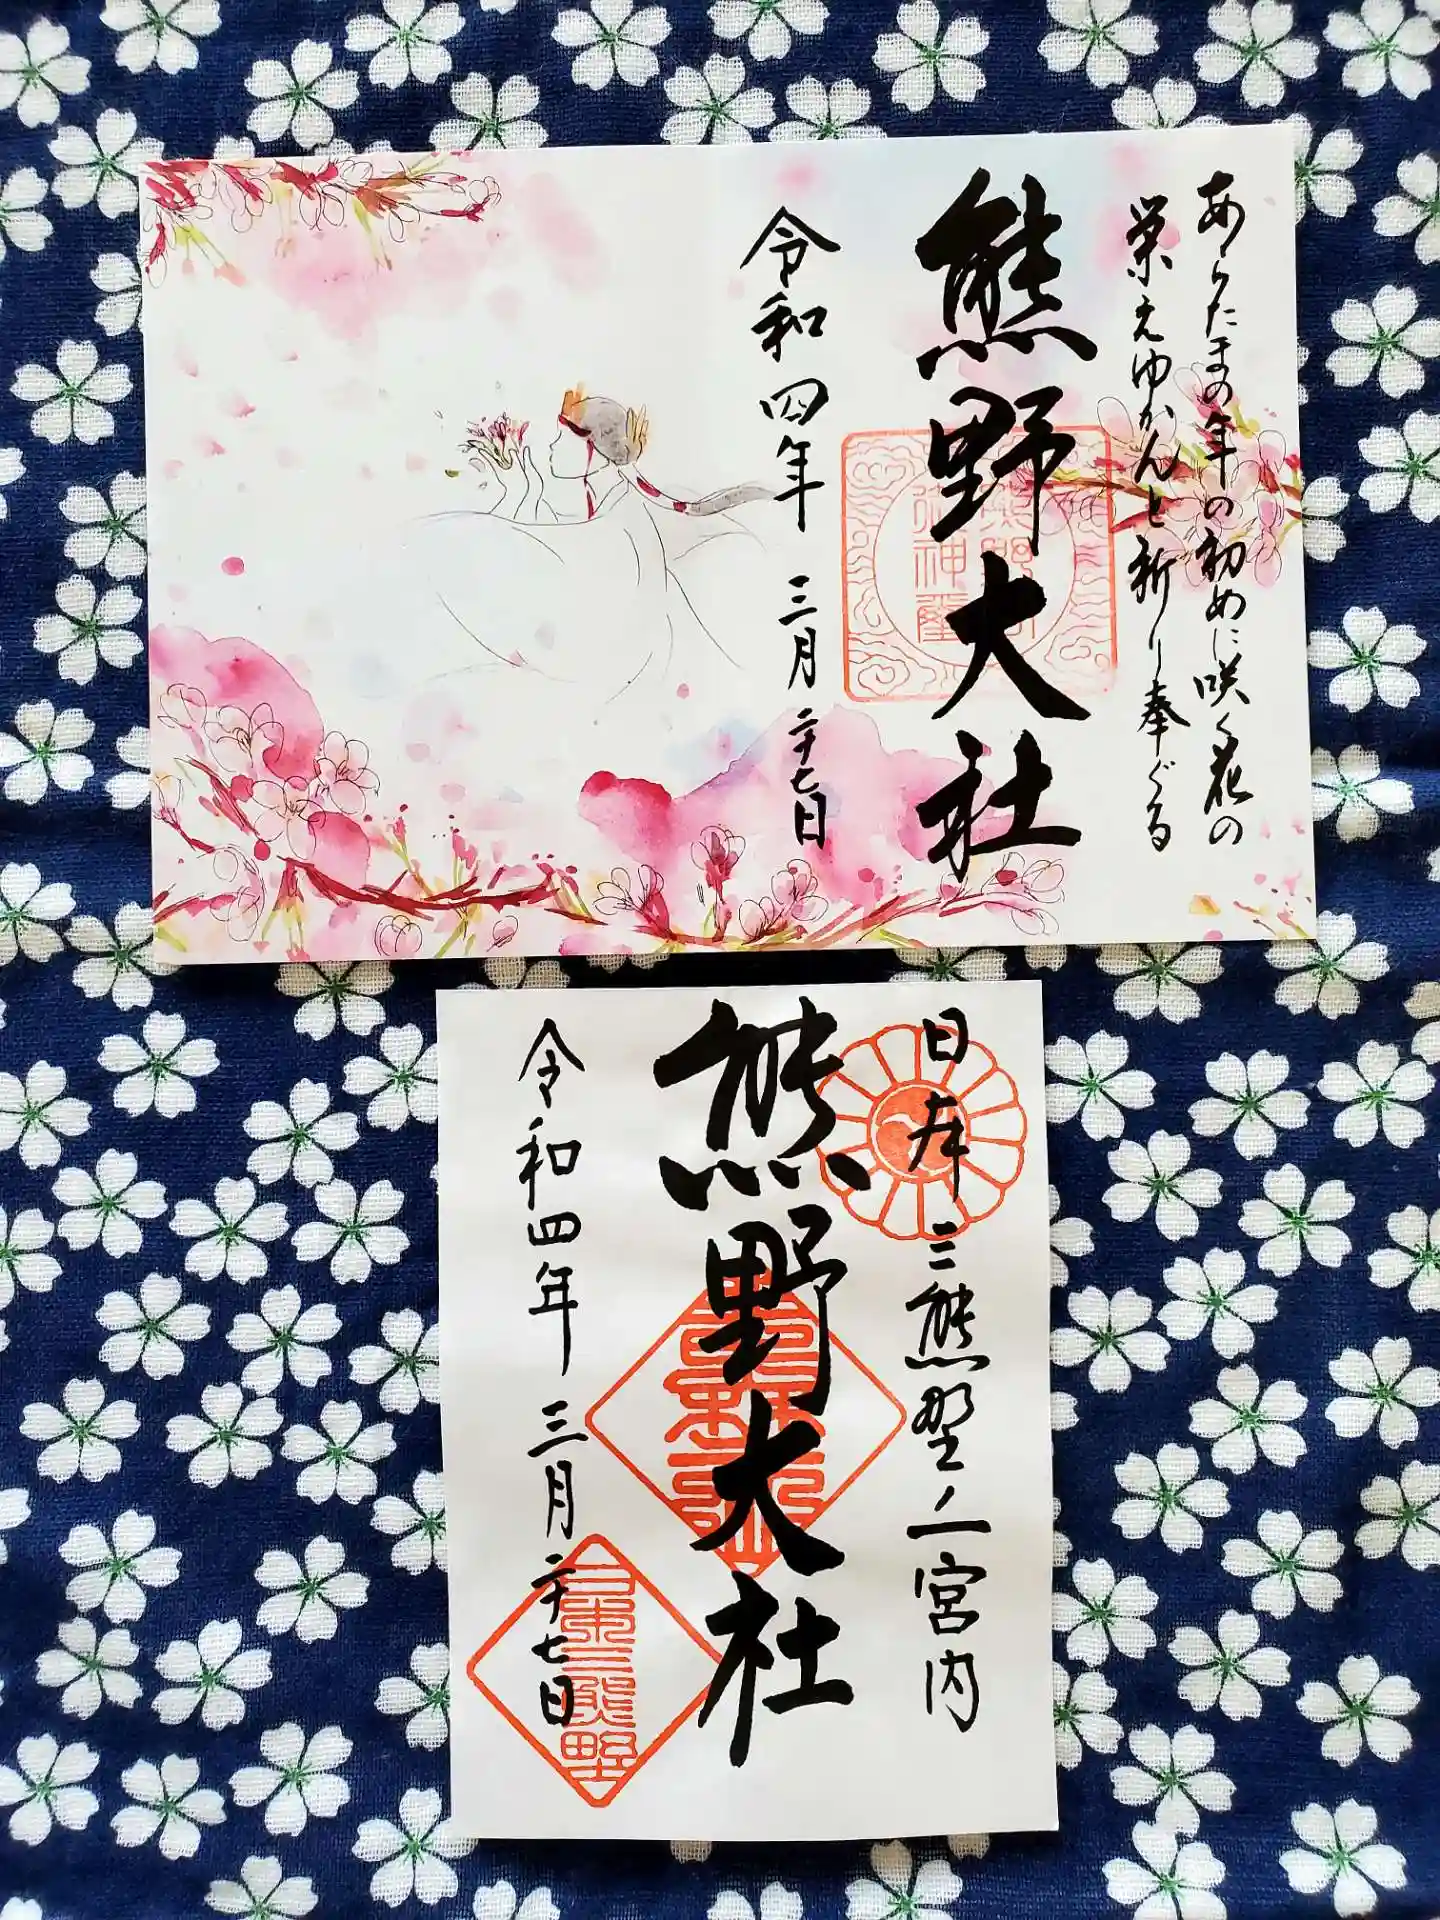 あらたまの年の初めに咲く花の
栄えゆかんと祈り奉ぐる
熊野大社
令和四年 三月 二十七日
日本三熊野ノ一宮内
熊野大社
令和四年 三月 二十七日
日本三熊野